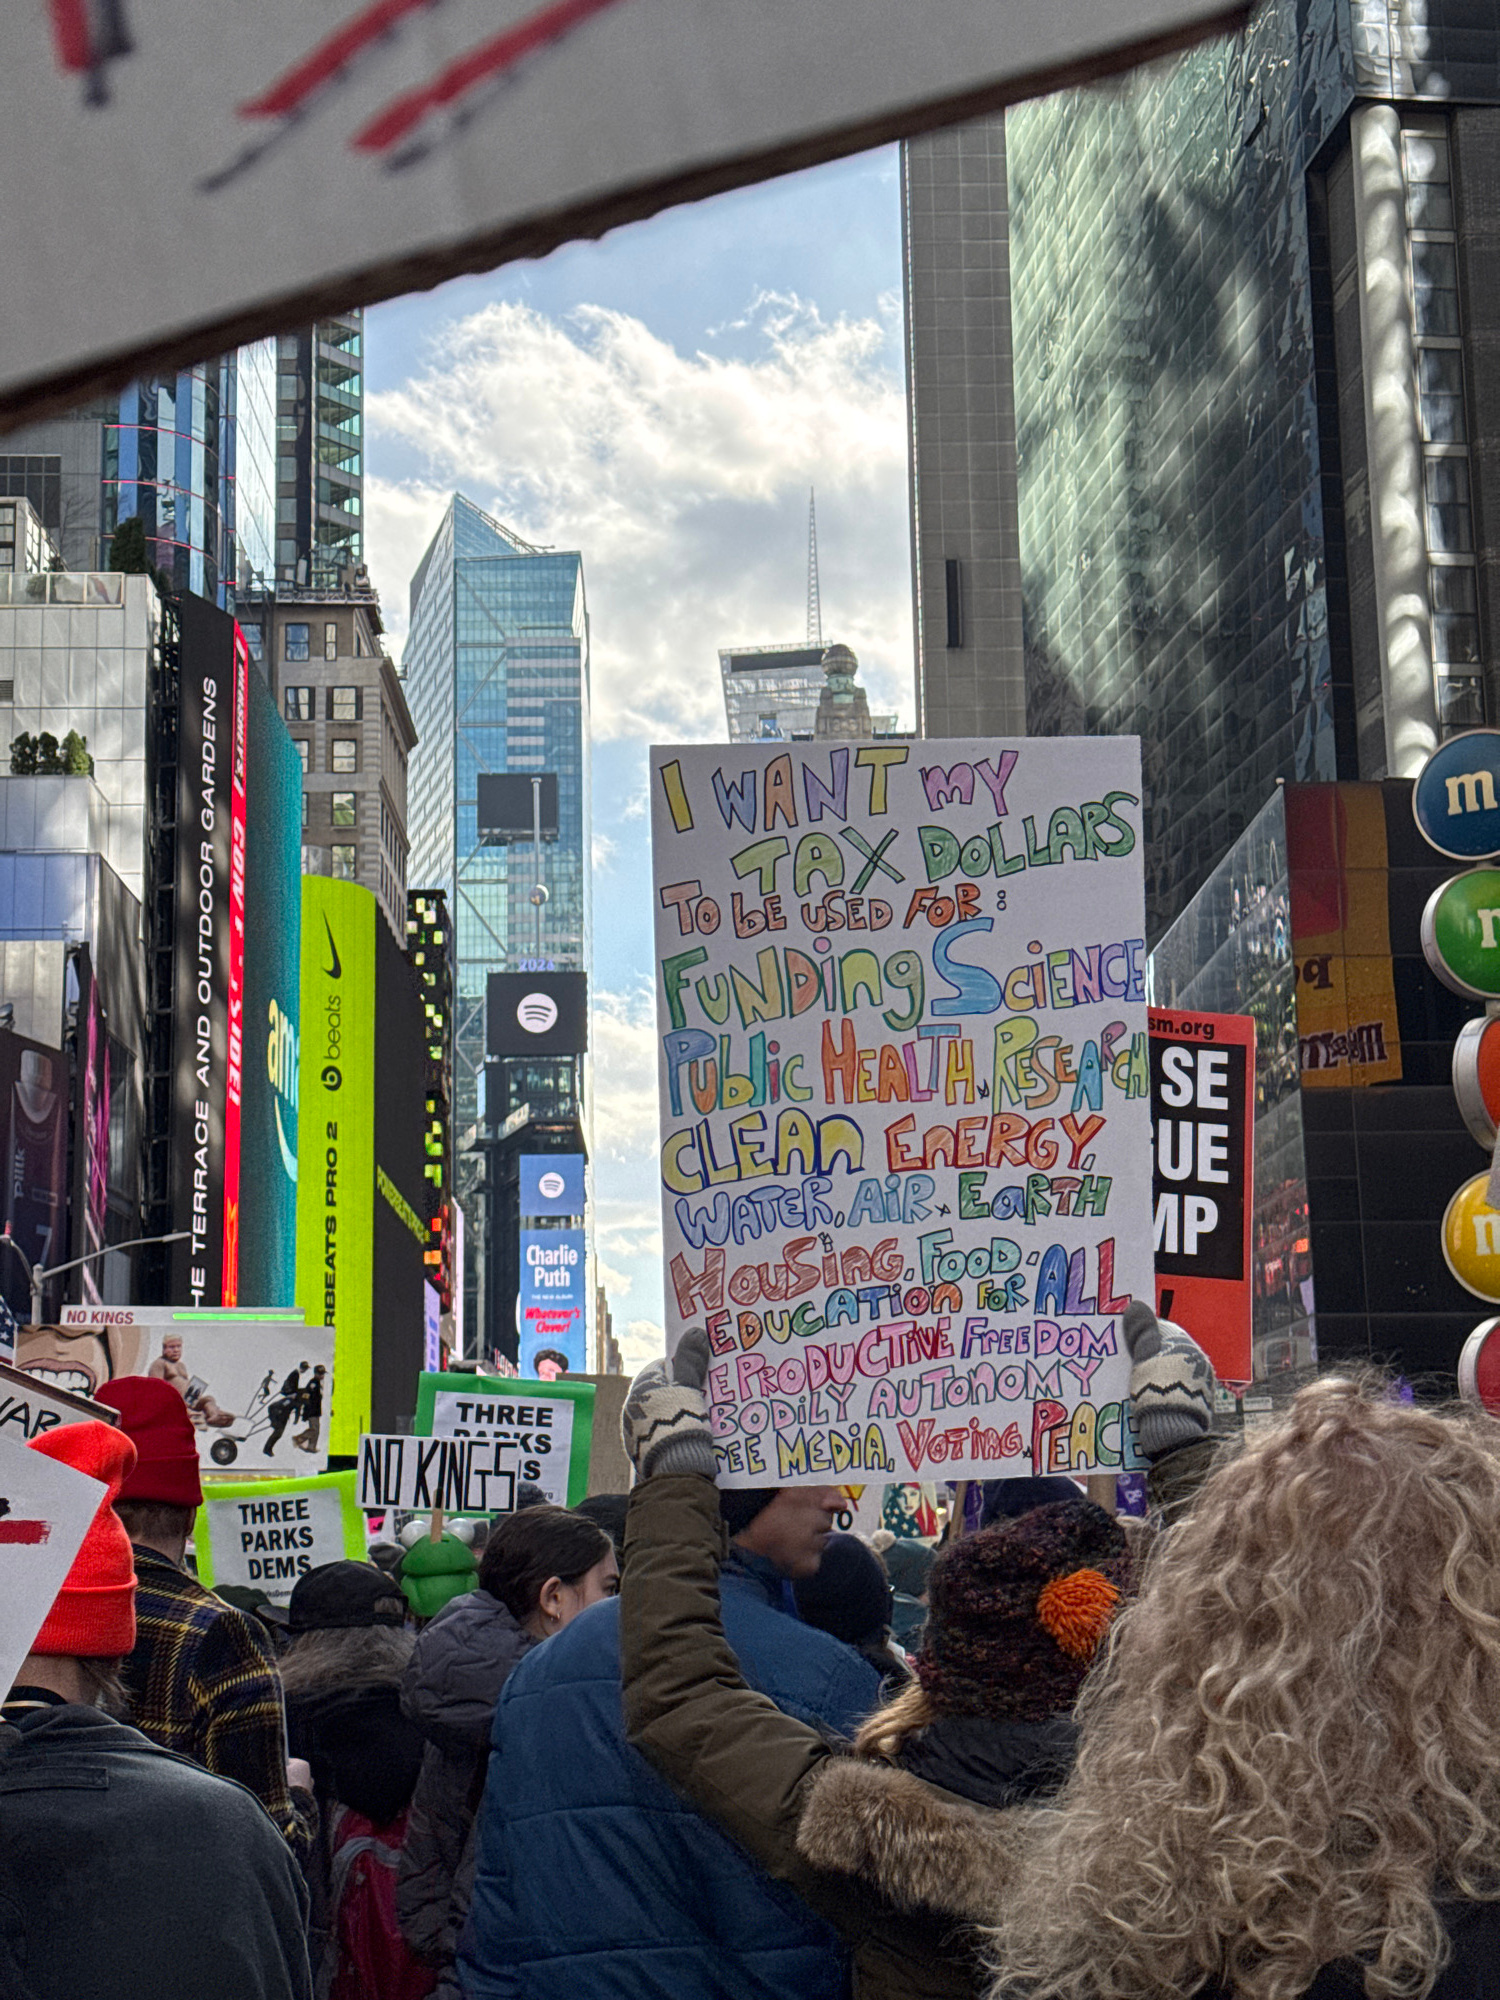 I WANT MY
TAX DOLLARS
TO BE USED FOR:
FUNDING SCIENCE
PUBLIC HEALTH & RESEARCH
CLEAN ENERGY,
WATER, AIR & EARTH
HOUSING, FOOD &
EDUCATION FOR ALL
EPRODUCTIVE FREEDOM
BODILY AUTONOMY
EE MEDIA, VOTING & PEACE
sm.org
SE
UE
MP
NO KINGS
THREE
PARKS
DEMS
THREE
PARKS
NO KINGS
WAR
HE TERRACE AND OUTDOOR GARDENS
beats
RBEATS PRO 2
am
2024
Charlie
Puth
THE NEW ALBUM
Whatever's
Clever!
m
m
m